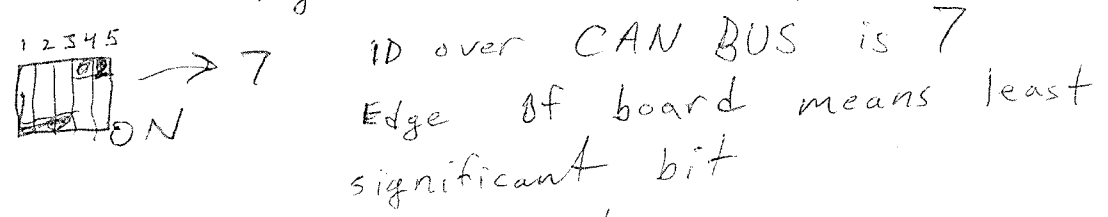 1 2 3 4 5
→ 7
ON
ID over CAN BUS is 7
Edge of board means least
significant bit